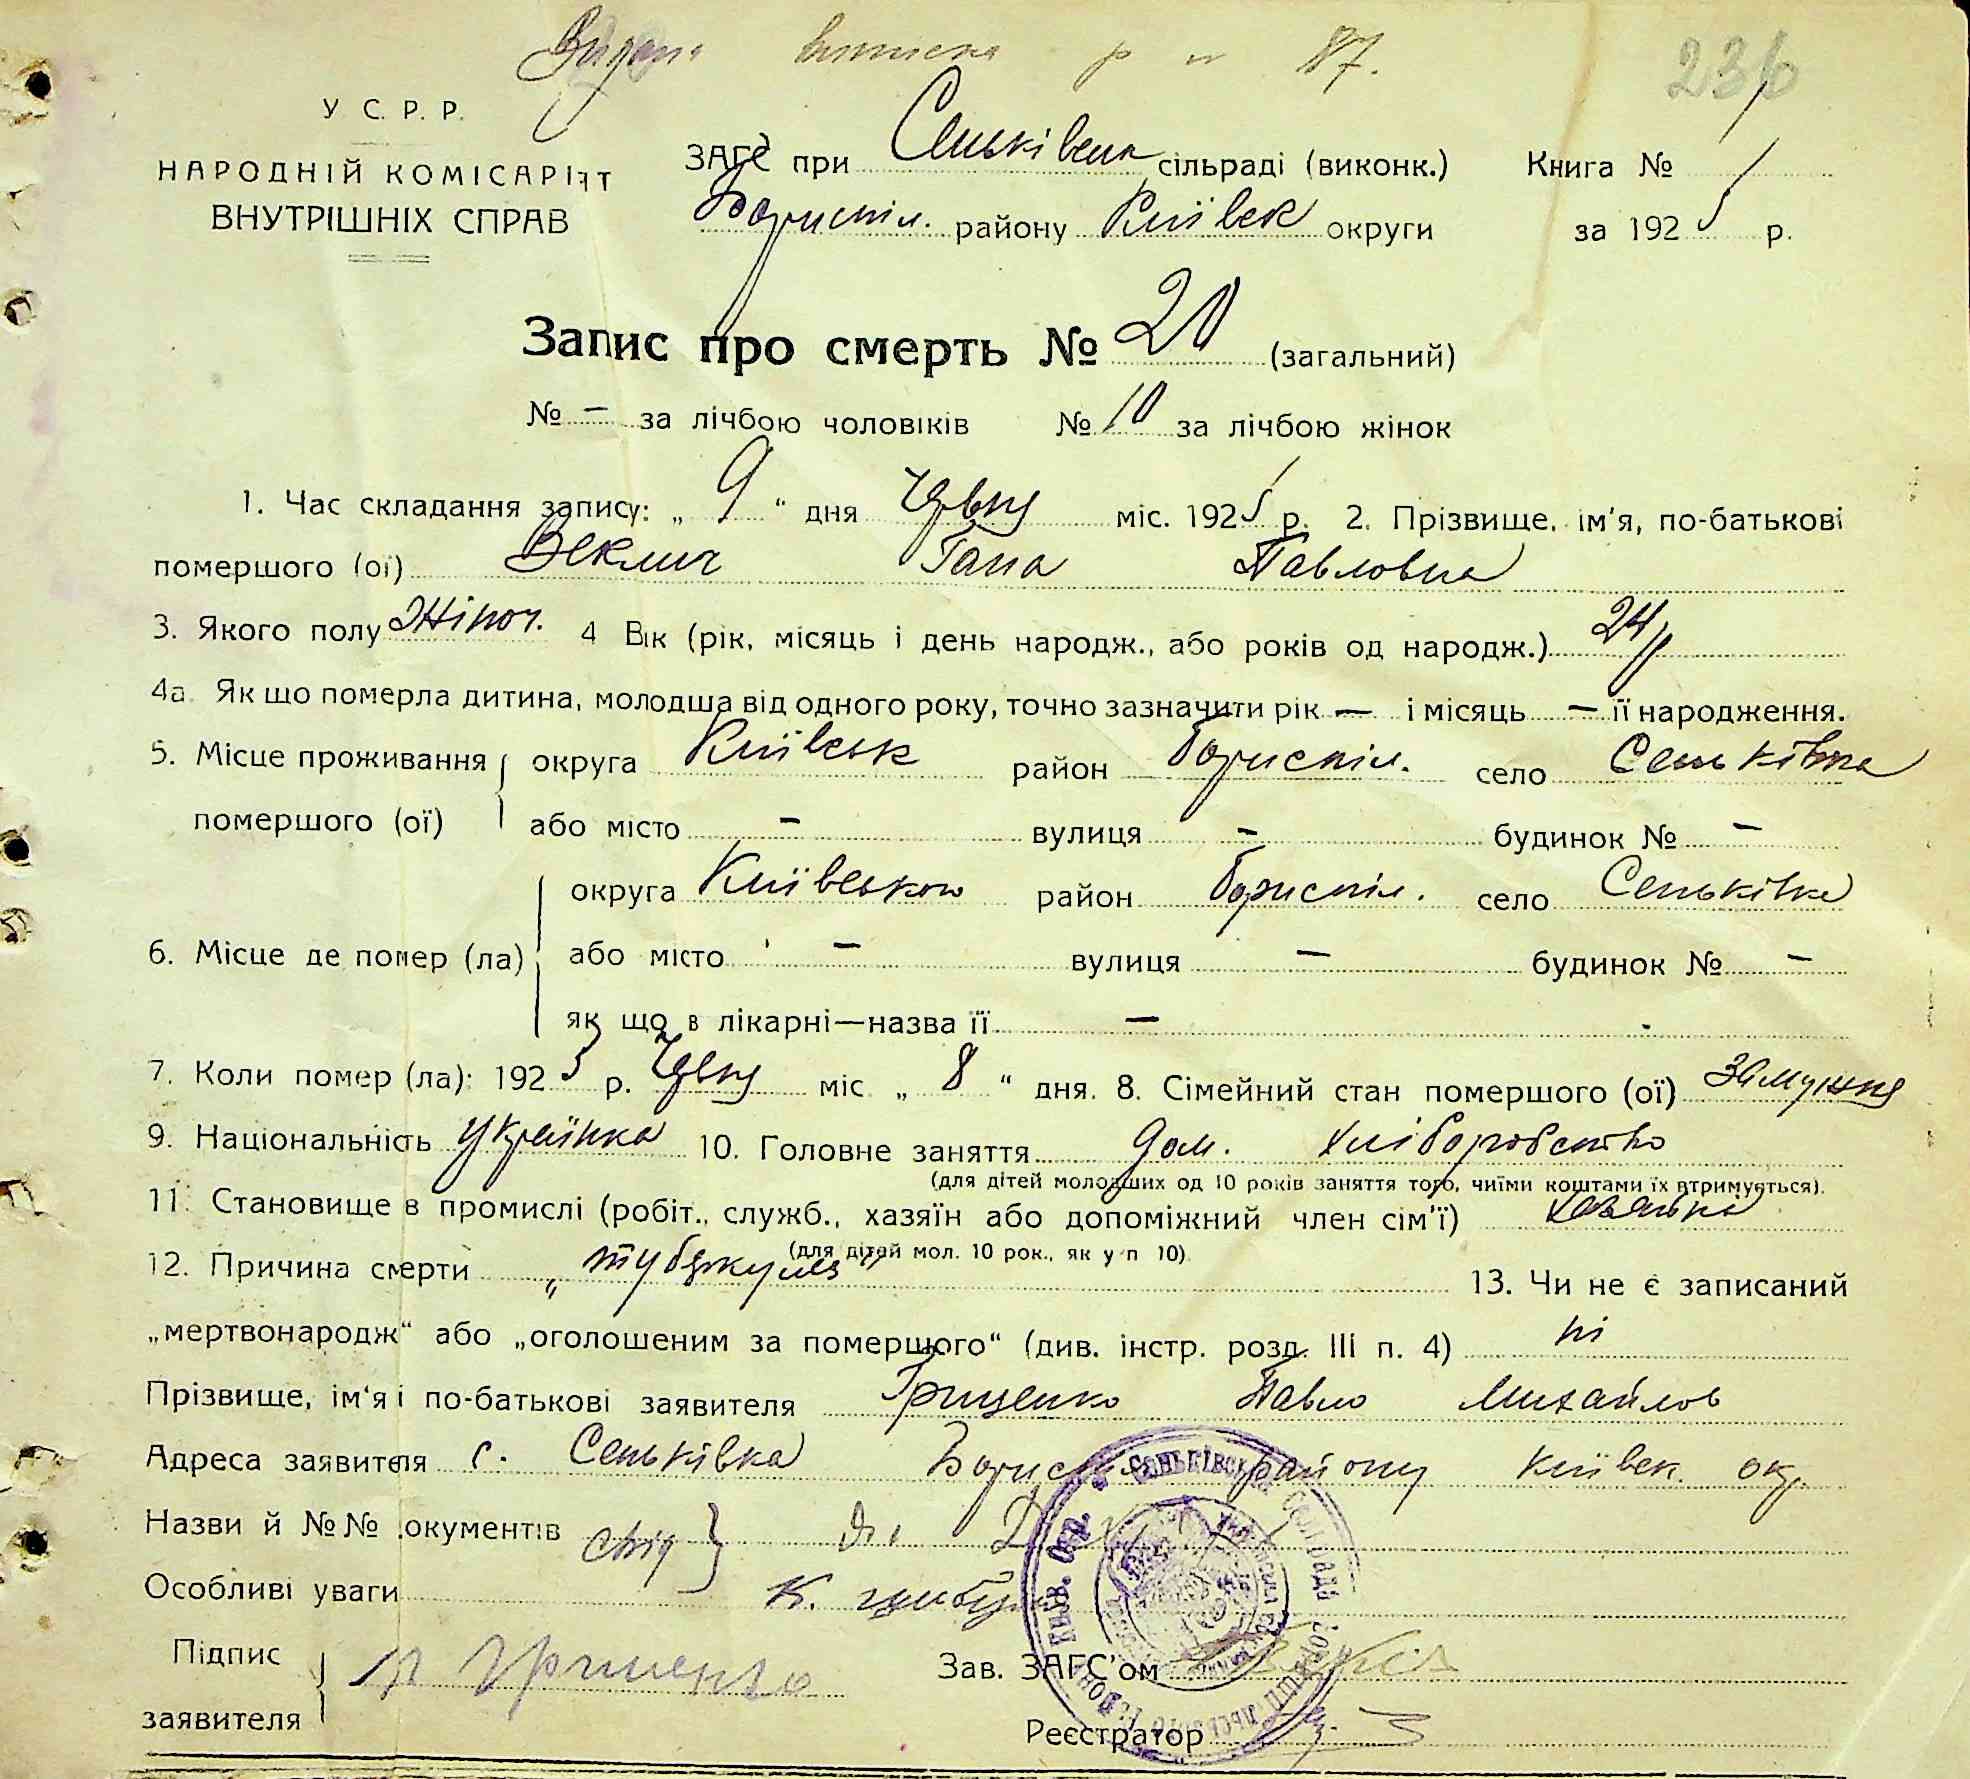 Видана виписка р н 87.
236
У С. Р. Р.
НАРОДНІЙ КОМІСАРІЯТ
ВНУТРІШНІХ СПРАВ
ЗАГС при Сеньківськ сільраді (виконк.) Книга № 1
Бориспіл. району Київськ округи за 1925 р.
Запис про смерть № 20 (загальний)
№ – за лічбою чоловіків № 10 за лічбою жінок
1. Час складання запису: „ 9 “ дня червня міс. 1925 р. 2. Прізвище, ім'я, по-батькові
помершого (ої) Веклич Гана Павловна
3. Якого полу Жіноч. 4 Вік (рік, місяць і день народж., або років од народж.) 24 р
4а. Як що померла дитина, молодша від одного року, точно зазначити рік — і місяць — її народження.
5. Місце проживання округа Київськ район Бориспіл. село Сеньківка
помершого (ої) або місто – вулиця – будинок № –
округа Київською район Бориспіл. село Сеньківка
6. Місце де помер (ла) або місто – вулиця – будинок № –
як що в лікарні—назва її —
7. Коли помер (ла): 1925 р. Червня міс „ 8 “ дня. 8. Сімейний стан помершого (ої) замужня
9. Національність українка 10. Головне заняття дом. хліборобство
(для дітей молодших од 10 років заняття того, чиїми коштами їх втримується).
11. Становище в промислі (робіт., служб., хазяїн або допоміжний член сім'ї) хазяйка
(для дітей мол. 10 рок., як у п 10)
12. Причина смерти „ туберкульоз 13. Чи не є записаний
„мертвонародж“ або „оголошеним за помершого“ (див. інстр. розд. III п. 4) ні
Прізвище, ім'я і по-батькові заявителя Грищенко Павло Михайлов
Адреса заявителя с. Сеньківка Бориспіл району Київск. окр.
Назви й №№ окументів
Особливі уваги
Підпис
заявителя П Грищенко
Зав. ЗАГС'ом
Реєстратор
Київ. Окр. Сеньківська Сільрада Бориспільського Району